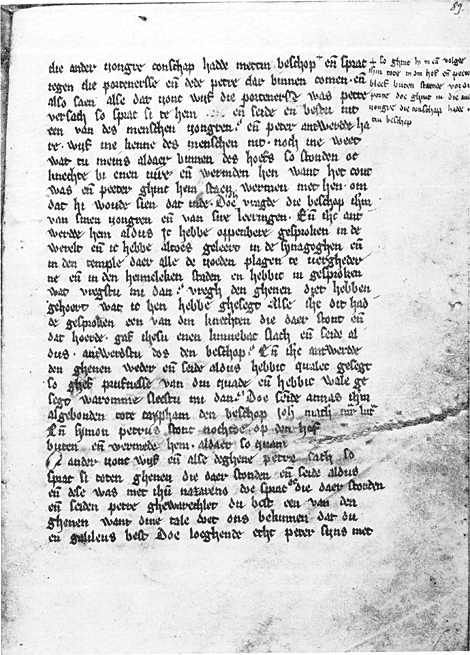 89.
die ander yongre conschap hadde mettin beschop en̄ sprac
tegen die portenersse en̄ dede petre dar binnen comen. en̄
also saen alse dat yonc wijf die portenersse was petre
versach so sprac si te hem en̄ seide en bestu nit
een van des menschen yongren. en̄ peter antwerde ha
re. wijf ine kenne des menschen nit. noch ine weet
wat tu meins aldaer binnen des hoefs so stonden oc
knechte bi enen vire en̄ wermden hen want het cout
was en̄ peeter ghinc hem staen wermen met hen. om
dat hi woude sien dat inde. Doe vragde die beschop ihm
van sinen yongren en̄ van sire leeringen. En̄ ihc ant
werde hem aldus ic hebbe oppenbere gesproken in de
werelt en̄ ic hebbe altoes geleert in de synagoghen en̄
in den temple daer alle de yoeden plagen te vergadere
ne en̄ in den heimeleken staden en hebbic nit gesproken
wat vregstu mi dan. vregh den ghenen diet hebben
gehoert wat ic hen hebbe ghesegt Alse ihc dit had
de gesproken een van din knechten die daer stont en̄
dat hoerde. gaf ihesu enen kinnebac slach en̄ seide al
dus. antwerdstu dos den beschop. En̄ ihc antwerde
den ghenen weder en̄ seide aldus hebbic qualec gesegt
so ghef par̄nesse van din quade en̄ hebbic wale ge
segt waromme sleestu mi dan. Doe seinde annas ihm
algebonden tote caypham den beschop Joh. math. mar. luc.
En̄ symon petrus stont nochtoe op den hof
buten en̄ wermede hem. aldaer so quam
ander yonc wijf en̄ alse deghene petre sach so
sprac si toten ghenen die daer stonden en̄ seide aldus
en̄ dese was met ihū nazarene doe spraken die daer stonden
en̄ seiden petre ghewarechlec du best een van den
ghenen want dine tale doet ons bekinnen dat du
en galileus best Doe loeghende echt peter sijns met
+ so ghinc hi in en̄ volgde
ihm tote in din hof en̄ petre
bleef buten staende vor di
porte doe ghinc ut die andre
yongre die conschap hadde met
tin beschop